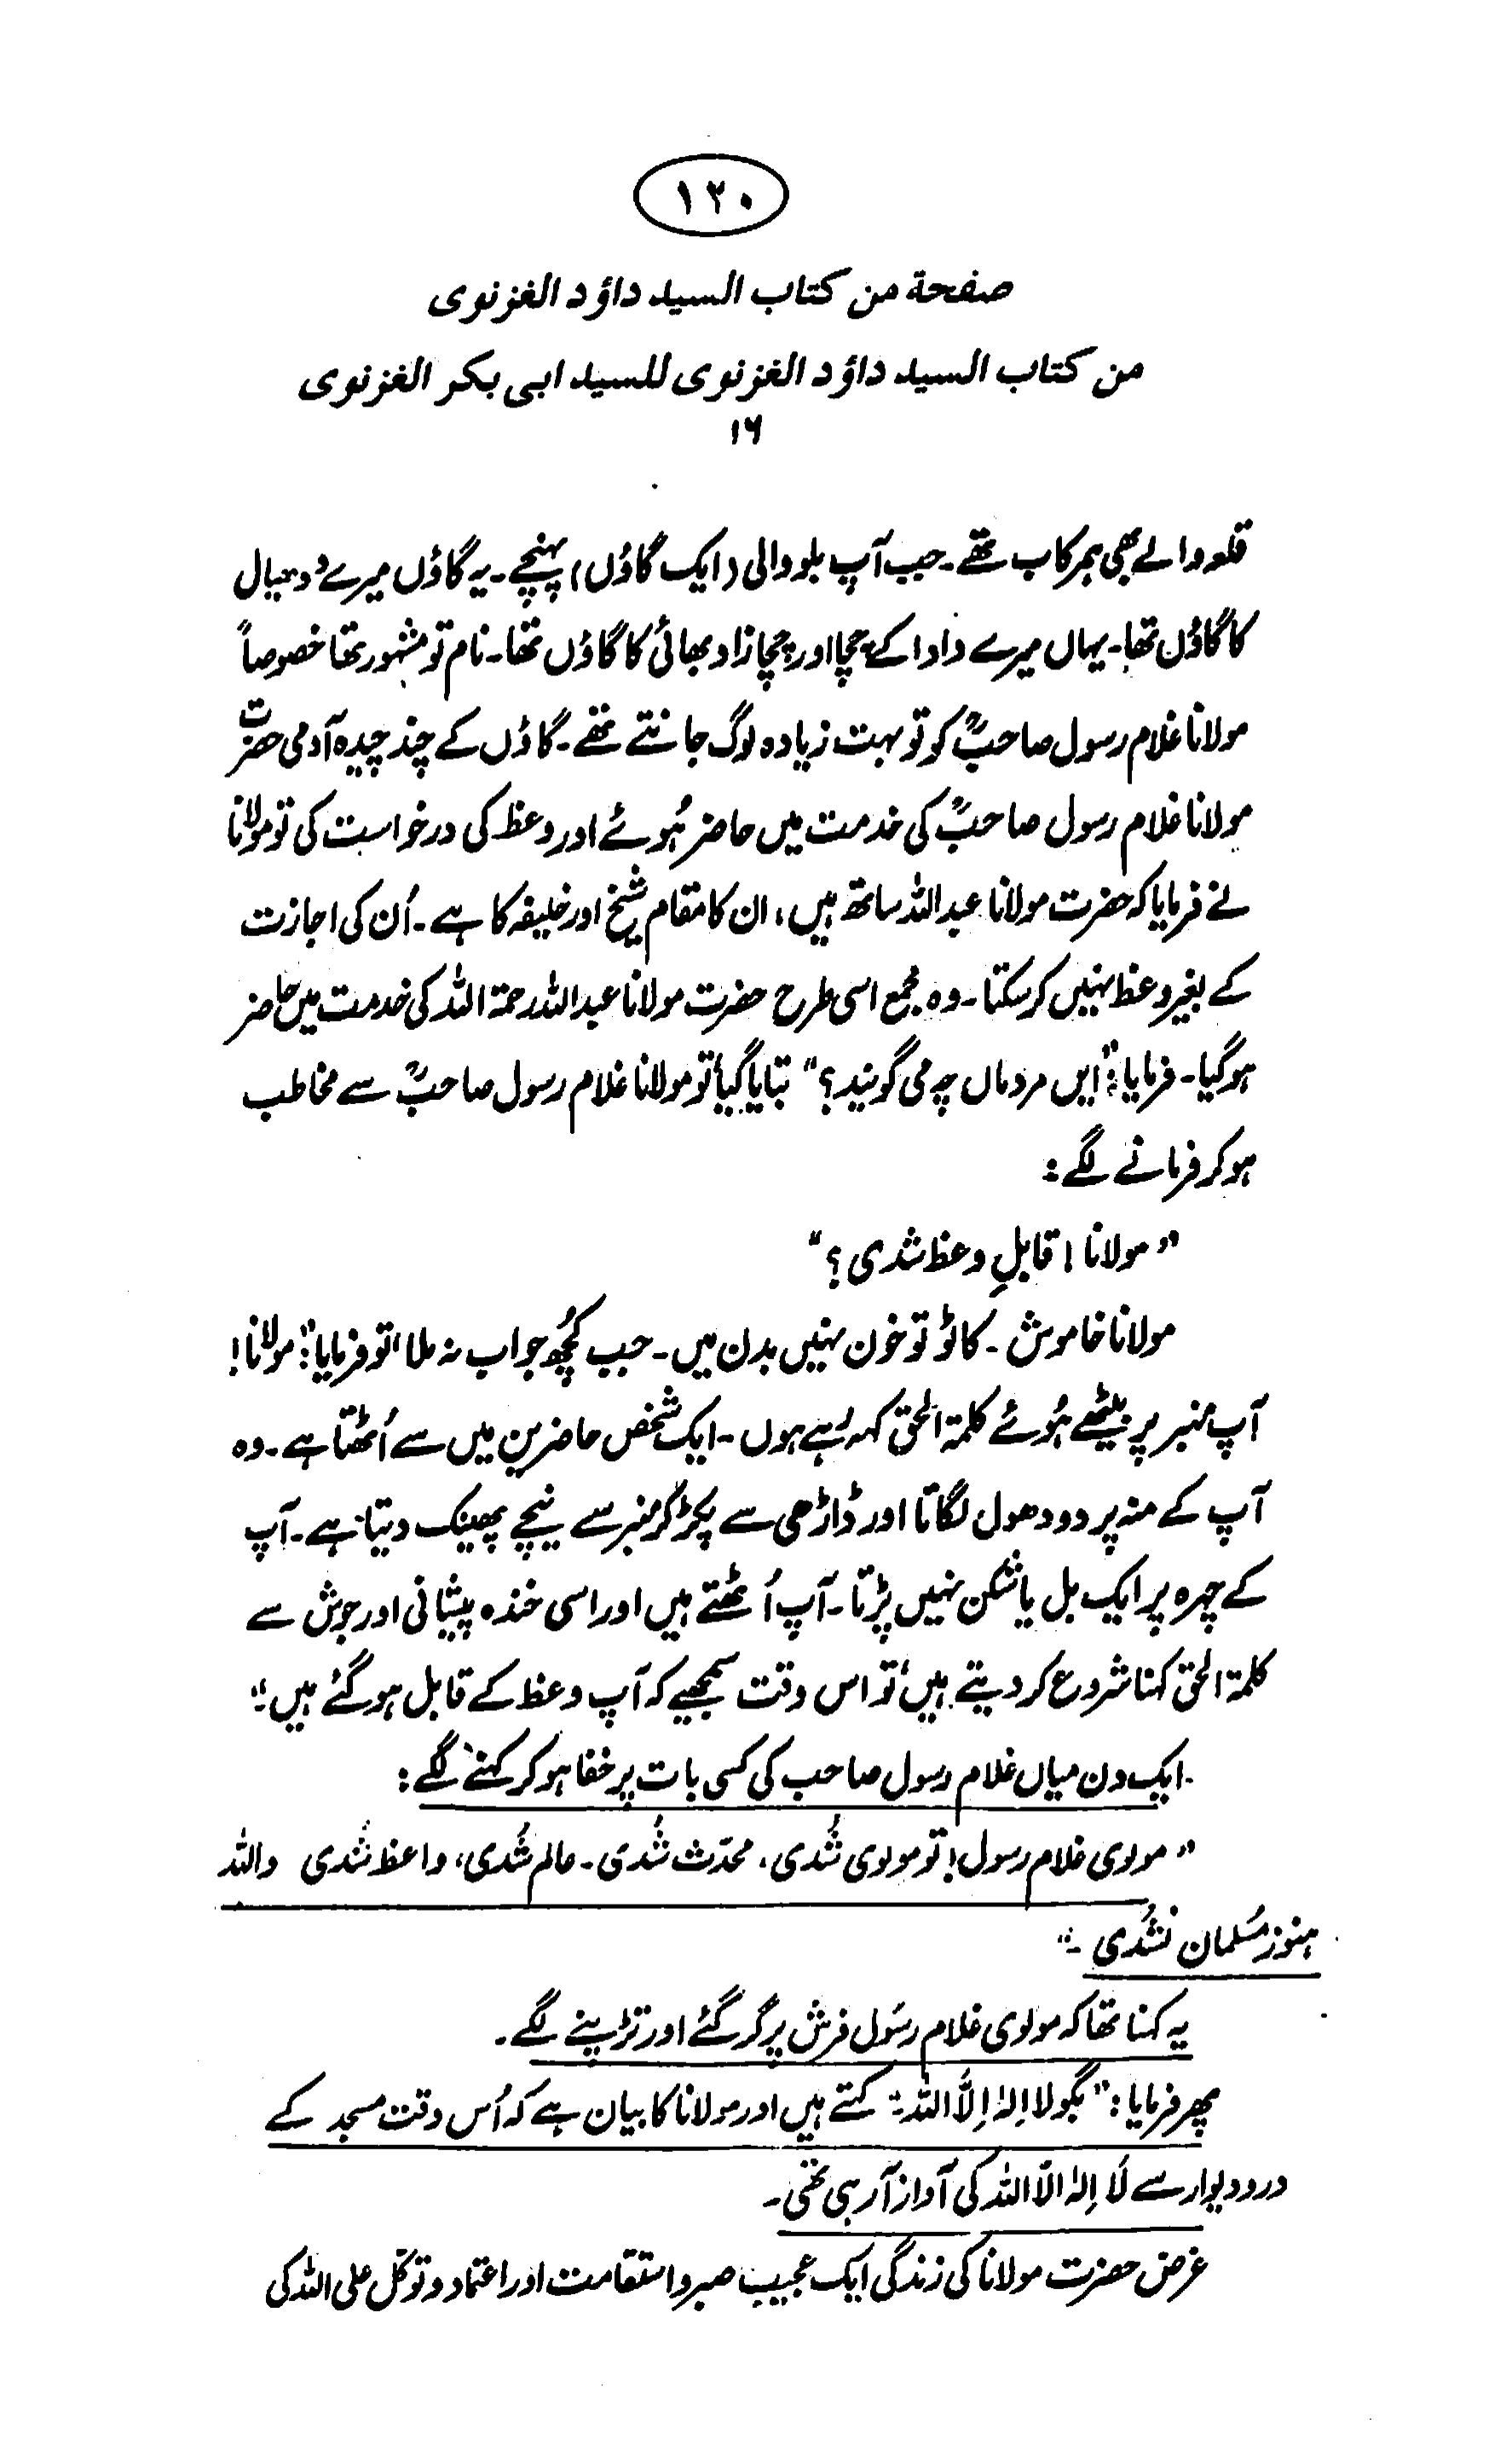 ١٢٠
صفحة من كتاب السيد داؤد الغزنوى
من كتاب السيد داؤد الغزنوى للسيد ابى بكر الغزنوى
١٦
قلعہ والے بھی ہمرکاب تھے۔ جب آپ بلو والی (ایک گاؤں) پہنچے۔ یہ گاؤں میرے ددھیال
کا گاؤں تھا۔ یہاں میرے دادا کے چچا اور چچا زاد بھائی کا گاؤں تھا۔ نام تو مشہور تھا خصوصاً
مولانا غلام رسول صاحبؒ کو تو بہت زیادہ لوگ جانتے تھے۔ گاؤں کے چند چیدہ آدمی حضرت
مولانا غلام رسول صاحبؒ کی خدمت میں حاضر ہُوئے اور وعظ کی درخواست کی تو مولانا
نے فرمایا کہ حضرت مولانا عبداللہ ساتھ ہیں، ان کا مقام شیخ اور خلیفہ کا ہے۔ اُن کی اجازت
کے بغیر وعظ نہیں کر سکتا۔ وہ مجمع اسی طرح حضرت مولانا عبداللہ رحمۃ اللہ کی خدمت میں حاضر
ہو گیا۔ فرمایا: "ایں مردماں چہ می گویند؟" بتایا گیا تو مولانا غلام رسول صاحبؒ سے مخاطب
ہو کر فرمانے لگے:
"مولانا! قابلِ وعظ شدی؟"
مولانا خاموش۔ کاٹو تو خون نہیں بدن میں۔ جب کُچھ جواب نہ ملا، تو فرمایا: "مولانا!
آپ منبر پر بیٹھے ہُوئے کلمۃ الحق کہہ رہے ہوں۔ ایک شخص حاضرین میں سے اُٹھتا ہے۔ وہ
آپ کے منہ پر دو دھول لگاتا اور ڈاڑھی سے پکڑ کر منبر سے نیچے پھینک دیتا ہے۔ آپ
کے چہرہ پر ایک بل یا شکن نہیں پڑتا۔ آپ اُٹھتے ہیں اور اسی خندہ پیشانی اور جوش سے
کلمۃ الحق کہنا شروع کر دیتے ہیں، تو اس وقت سمجھیے کہ آپ وعظ کے قابل ہو گئے ہیں۔"
ایک دن میاں غلام رسول صاحب کی کسی بات پر خفا ہو کر کہنے لگے:
"مولوی غلام رسول! تو مولوی شُدی، محدّث شُدی۔ عالم شُدی، واعظ شُدی واللہ
ہنوز مُسلمان نشُدی۔"
یہ کہنا تھا کہ مولوی غلام رسُول فرش پر گر گئے اور تڑپنے لگے۔
پھر فرمایا: "بگو لا اِلٰہ اِلَّا اللہ۔" کہتے ہیں اور مولانا کا بیان ہے کہ اُس وقت مسجد کے
در و دیوار سے لَا اِلٰہ الّا اللہ کی آواز آ رہی تھی۔
غرض حضرت مولانا کی زندگی ایک عجیب صبر و استقامت اور اعتماد و توکّل علی اللہ کی